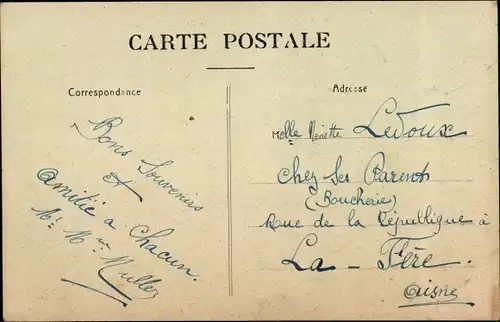 CARTE POSTALE
Correspondance
Bons Souvenirs
et
Amitié a Chacun.
Mr Mme Muller
Adresse
Melle Ledoux
Chez Ses Parents
(Boucherie)
Rue de la République à
La - Fère.
Aisne